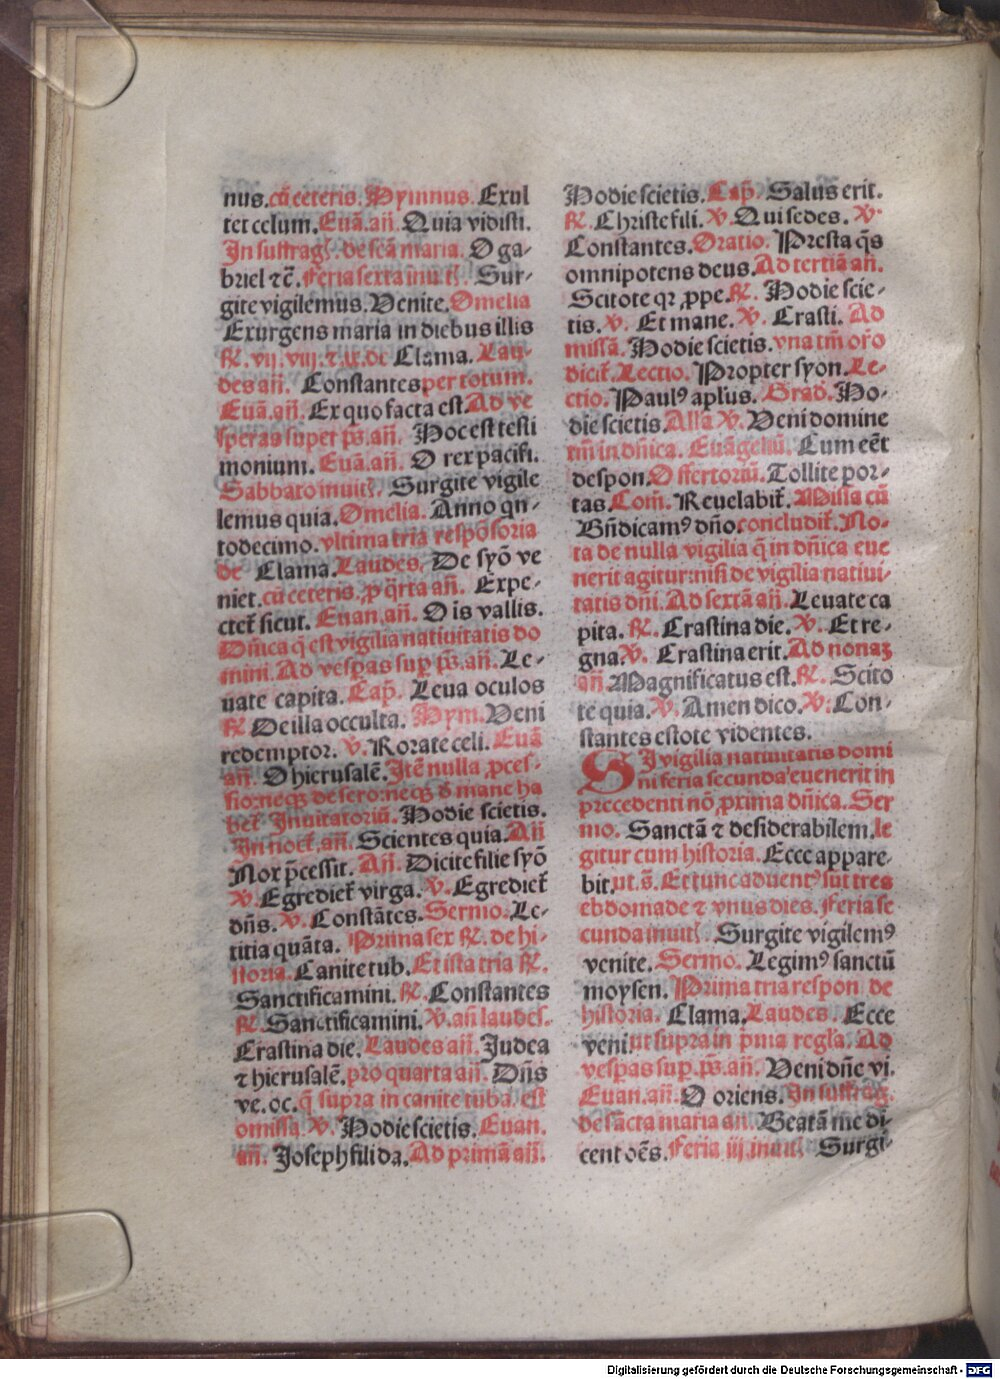 nus. cū ceteris. Hymnus. Exul
tet celum. Euā. añ. Quia vidisti.
In suffragꝭ. de scā maria. O ga-
briel ⁊c̄. Feria sexta inuitꝭ. Sur-
gite vigilemus. Venite. Omelia
Exurgens maria in diebus illis
R̄. vij. viij. ⁊ ix. de Clama. Lau-
des añ. Constantes per totum.
Euā. añ. Ex quo facta est. Ad ve
speras super p̄s. añ. Hoc est testi
monium. Euā. añ. O rex pacifi.
Sabbato inuitꝭ. Surgite vigile
lemus quia. Omelia. Anno qn-
todecimo. vltima tria respōsoria
de Clama. Laudes. De syō ve
niet. cū ceteris. ꝓ q̄rta añ. Expe-
ctet̄ sicut. Euan. añ. O is vallis.
Dn̄ica q̄ est vigilia natiuitatis do
mini. Ad vesꝑas suꝑ p̄s. añ. Le-
uate capita. Cap̄. Leua oculos
R̄ De illa occulta. Hym. Veni
redemptor. v̄. Rorate celi. Euā
añ. O hierusalē. Itē nulla ꝓces-
sio: neqꝫ de sero: neqꝫ d̄ mane ha
bet̄. Inuitatoriū. Hodie scietis.
In noct̄. añ. Scientes quia. Añ
Nox p̄cessit. Añ. Dicite filie syō
V. Egrediet̄ virga. v. Egrediet̄
dn̄s. v. Constātes. Sermo. Le-
titia quāta. Prima sex R̄. de hi-
storia. Canite tub. Et ista tria R̄.
Sanctificamini. R̄. Constantes
R̄. Sanctificamini. V. añ laudes.
Crastina die. Laudes añ. Judea
⁊ hierusalē. pro quarta añ. Dn̄s
ve. oc. q̄ supra in canite tuba. est
omissa. V. Hodie scietis. Euan.
añ. Joseph fili da. Ad primā añ.
Hodie scietis. Cap̄. Salus erit.
R̄. Christe fili. V. Qui sedes. V.
Constantes. Oratio. Presta q̄s
omnipotens deus. Ad tertiā añ.
Scitote qꝛ ꝓpe. R̄. Hodie scie-
tis. V. Et mane. V. Crasti. Ad
missā. Hodie scietis. vna tm̄ or̄o
dicit̄. Lectio. Propter syon. Le-
ctio. Paulꝰ apl̄us. Grad̄. Ho-
die scietis. Alla V. Veni domine
tm̄ in dn̄ica. Euāgeliū. Cum eēt
despon. Offertoriū. Tollite por-
tas. Com̄. Reuelabit̄. Missa cū
Bn̄dicamꝰ dn̄o. concludit̄. No-
ta de nulla vigilia q̄ in dn̄ica eue
nerit agitur: nisi de vigilia natiui-
tatis dn̄i. Ad sextā añ. Leuate ca
pita. R̄. Crastina die. V. Et re-
gna. V. Crastina erit. Ad nonaꝫ
añ. Magnificatus est. R̄. Scito
te quia. V. Amen dico. V. Con-
stantes estote videntes.
SI vigilia natiuitatis domi
ni feria secunda euenerit in
precedenti nō ꝓxima dn̄ica. Ser
mo. Sanctā ⁊ desiderabilem. le
gitur cum historia. Ecce appare-
bit. ut s̄. Et tunc aduentꝰ sūt tres
ebdomade ⁊ vnus dies. Feria se
cunda inuitꝭ. Surgite vigilemꝰ
venite. Sermo. Legimꝰ sanctū
moysen. Prima tria respon de
historia. Clama. Laudes. Ecce
veni. ut supra in p̄ma regl̄a. Ad
vesꝑas sup. p̄s. añ. Veni dn̄e vi.
Euan. añ. O oriens. In suffrag.
de sācta maria an. Beatā me di-
cent oēs. Feria iij. inuitꝭ Surgi-
Digitalisierung gefördert durch die Deutsche Forschungsgemeinschaft - DFG